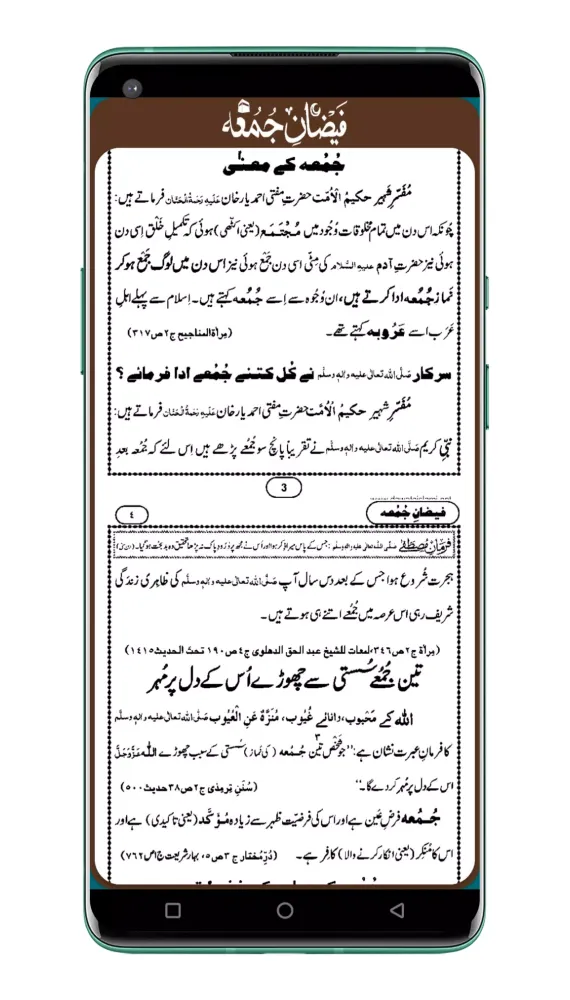 فیضانِ جُمُعہ
جُمُعہ کے معنٰی
مُفَسِّرِ شہیر حکیمُ الْاُمَّت حضرتِ مفتی احمد یار خان عَلَیْہِ رَحْمَۃُ الْحَنَّان فرماتے ہیں:
چُونکہ اس دن میں تمام مخلوقات وُجُود میں مُجْتَمَع (یعنی اکٹھی) ہوئی کہ تکمیلِ خَلْق اِسی دن
ہوئی نیز حضرتِ آدم علیہ السَّلام کی مِٹّی اسی دن جَمْع ہوئی نیز اس دن میں لوگ جَمْع ہوکر
نمازِ جُمُعہ ادا کرتے ہیں، ان وُجُوہ سے اِسے جُمُعہ کہتے ہیں۔ اِسلام سے پہلے اہلِ
عَرَب اسے عَرُوبہ کہتے تھے۔ (مِراٰۃُ المناجیح ج۲ ص۳۱۷)
سرکار صَلَّی اللہ تعالٰی علیہ واٰلہٖ وسلَّم نے کُل کتنے جُمُعے ادا فرمائے؟
مُفَسِّرِ شہیر حکیمُ الْاُمَّت حضرتِ مفتی احمد یار خان عَلَیْہِ رَحْمَۃُ الْحَنَّان فرماتے ہیں:
نبیِّ کریم صَلَّی اللہ تعالٰی علیہ واٰلہٖ وسلَّم نے تقریباً پانچ سو جُمُعے پڑھے ہیں اِس لئے کہ جُمُعہ بعدِ
3
فیضانِ جُمُعہ
٤
فرمانِ مصطفےٰ صَلَّی اللہ تعالٰی علیہ واٰلہٖ وسلَّم: جس کے پاس میرا ذکر ہوا اور اُس نے مجھ پر دُرُودِ پاک نہ پڑھا تحقیق وہ بدبخت ہوگیا۔
ہجرت شُروع ہوا جس کے بعد دس سال آپ صَلَّی اللہ تعالٰی علیہ واٰلہٖ وسلَّم کی ظاہری زندگی
شریف رہی اس عرصہ میں جُمُعے اتنے ہی ہوتے ہیں۔
(مِراٰۃ ج۲ ص۳۴۶، لمعات للشیخ عبد الحق الدھلوی ج٤ ص۱۹۰ تحت الحدیث ۱٤۱٥)
تین جُمُعے سُستی سے چھوڑے اُس کے دل پر مُہر
اللہ کے مَحبوب، دانائے غُیُوب، مُنَزَّہٌ عَنِ الْعُیُوب صَلَّی اللہ تعالٰی علیہ واٰلہٖ وسلَّم
کا فرمانِ عبرت نشان ہے: ’’جو شخص تین جُمُعہ (کی نَماز) سُستی کے سبب چھوڑے اللہ عَزَّوَجَلَّ
اس کے دل پر مُہر کر دے گا۔‘‘ (سُنَنِ تِرمِذی ج۲ ص۳۸ حدیث ۵۰۰)
جُمُعہ فرضِ عَین ہے اور اس کی فرضیّت ظہر سے زیادہ مُؤَکَّد (یعنی تاکیدی) ہے اور
اس کا مُنکِر (یعنی انکار کرنے والا) کافر ہے۔ (دُرِّمُختار ج۳ ص۵، بہارِ شریعت ج۱ ص۷۶۲)